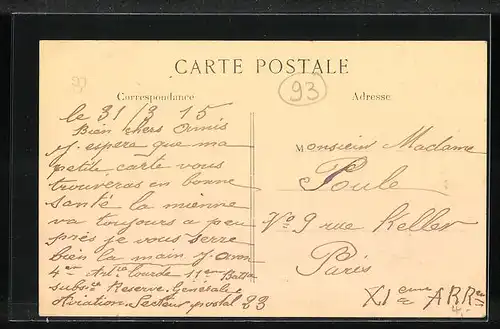 93
CARTE POSTALE
93
Correspondance
Adresse
le 31/3 15
Bien chers Amis
J. espere que ma
petite carte vous
trouveras en bonne
santé la mienne
va toujours a peu
près je vous serre
bien la main
4em Artie lourde 11em Battie
subsce Reserve Générale
Aviation. Secteur postal 23
Monsieur Madame
Poule
No 9 rue Keller
Paris
XIeme ARRen
4.-